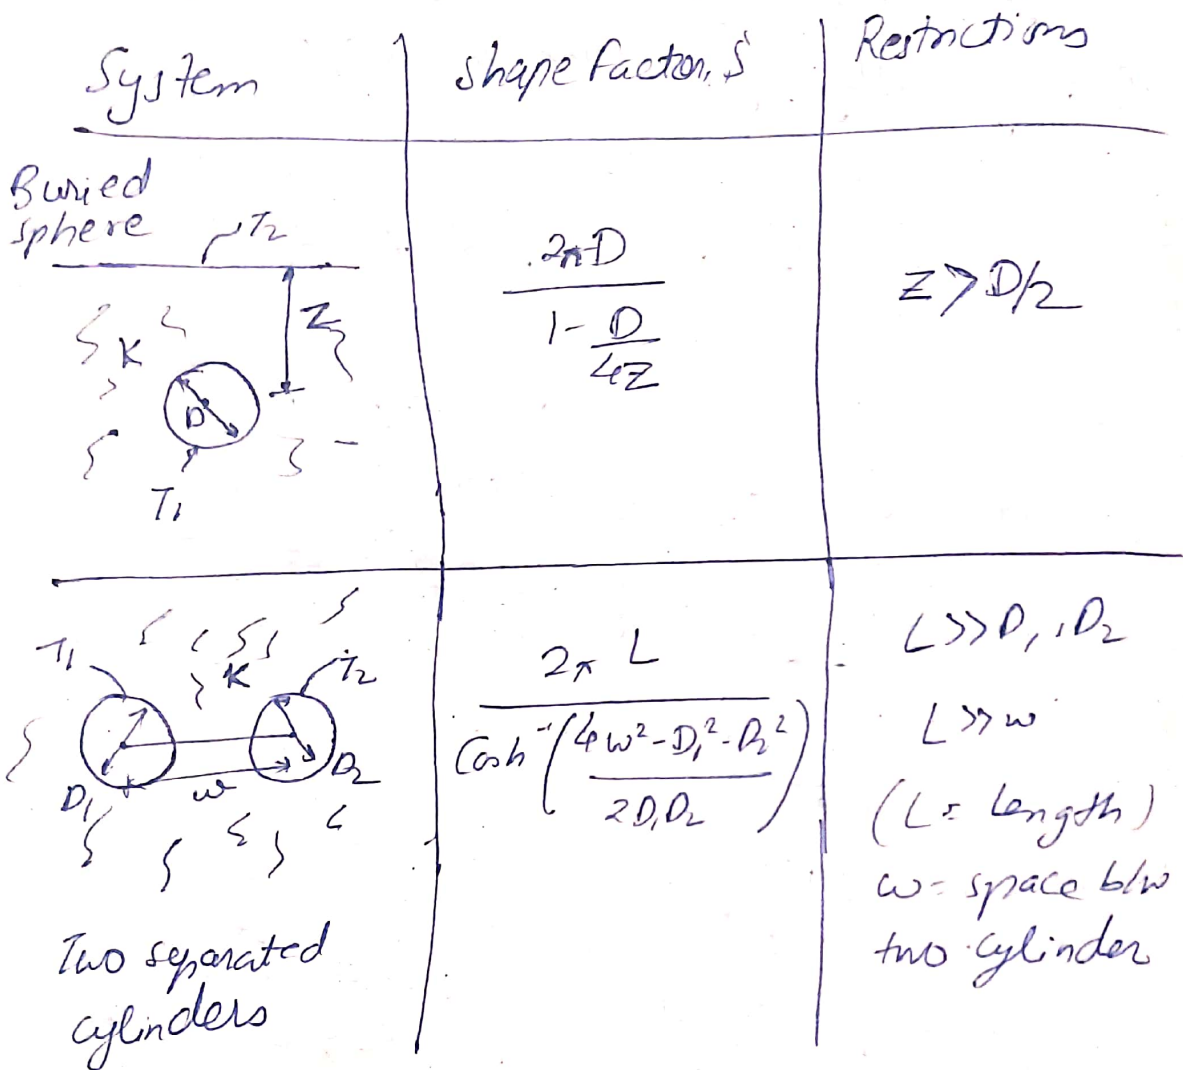 System
shape factor, S
Restrictions
Buried
sphere
T2
Z
K
D
T1
2πD
1 - D
4Z
Z > D/2
T1
K
T2
D1
w
D2
Two separated
cylinders
2π L
Cosh⁻¹(4w² - D1² - D2²)
2D1D2
L >> D1, D2
L >> w
(L = Length)
w = space b/w
two cylinder